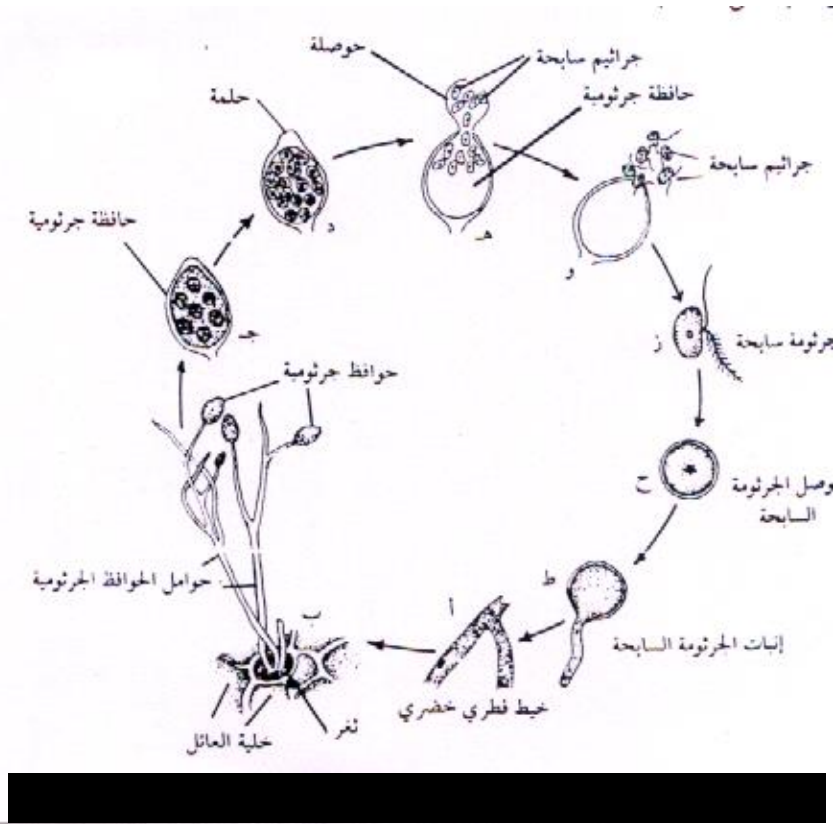 حوصلة
جراثيم سابحة
حافظة جرثومية
حلمة
جراثيم سابحة
حافظة جرثومية
د
هـ
و
جـ
جرثومة سابحة
ز
حوافظ جرثومية
ح
وصل الجرثومة
السابحة
حوامل الحوافظ الجرثومية
ط
أ
ب
إنبات الجرثومة السابحة
خيط فطري خضري
ثغر
خلية العائل